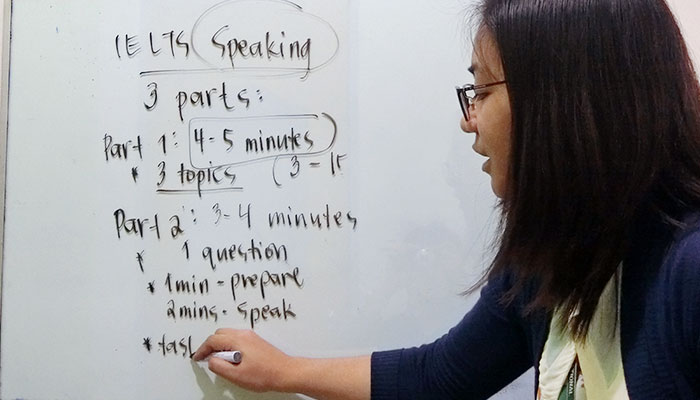 IELTS Speaking
3 parts:
Part 1: 4-5 minutes
* 3 topics (3-15
Part 2: 3-4 minutes
* 1 question
* 1min - prepare
2mins - speak
* tas